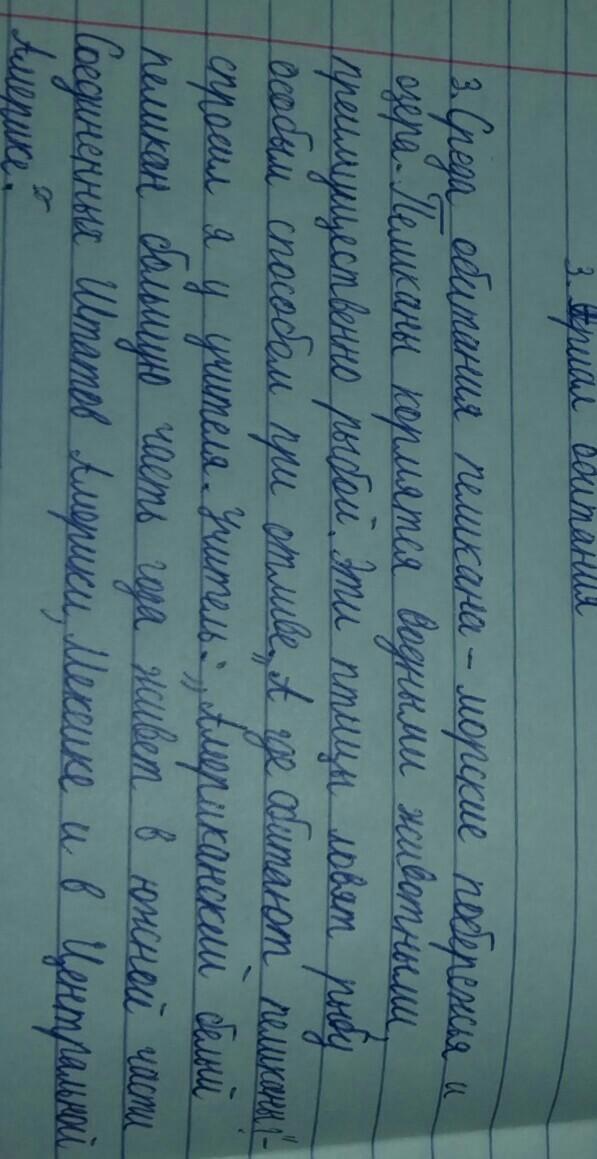 3. Ариал обитания
3. Среда обитания пеликана – морские побережья и
озера. Пеликаны кормятся водными животными,
преимущественно рыбой. Эти птицы ловят рыбу
особым способом при отливе. „А где обитают пеликаны?“-
спросил я у учителя. Учитель: „Американский белый
пеликан большую часть года живет в южной части
Соединенных Штатов Америки, Мексике и в Центральной
Америке.“